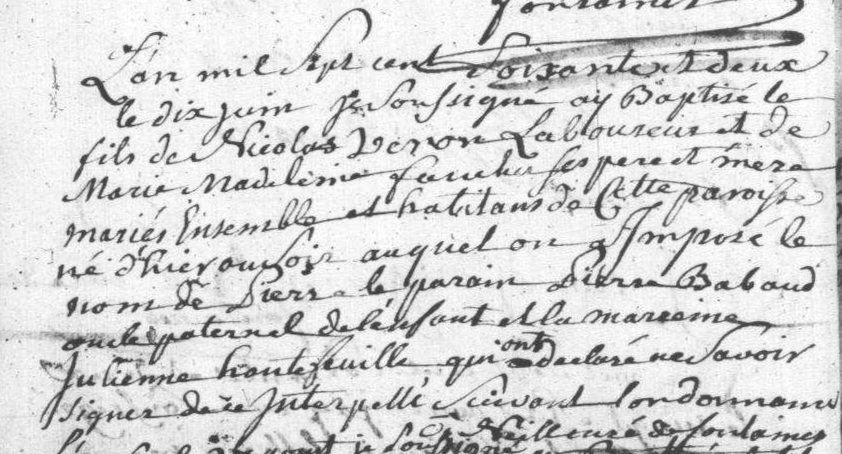 fontaines
L'an mil sept cent soixante et deux
le dix juin je soussigné ay Baptisé le
fils de Nicolas Veron Laboureur et de
Marie Madeleine ses pere et mere
mariés Ensemble et habitans de Cette paroisse
né d'hier au soir auquel on a Imposé le
nom de Pierre le parain Pierre Babaud
oncle paternel de l'enfant et la mareine
Julienne hautefeuille qui ont declaré ne savoir
signer de ce Interpellé suivant l'ordonnance
je soussigné curé de fontaines